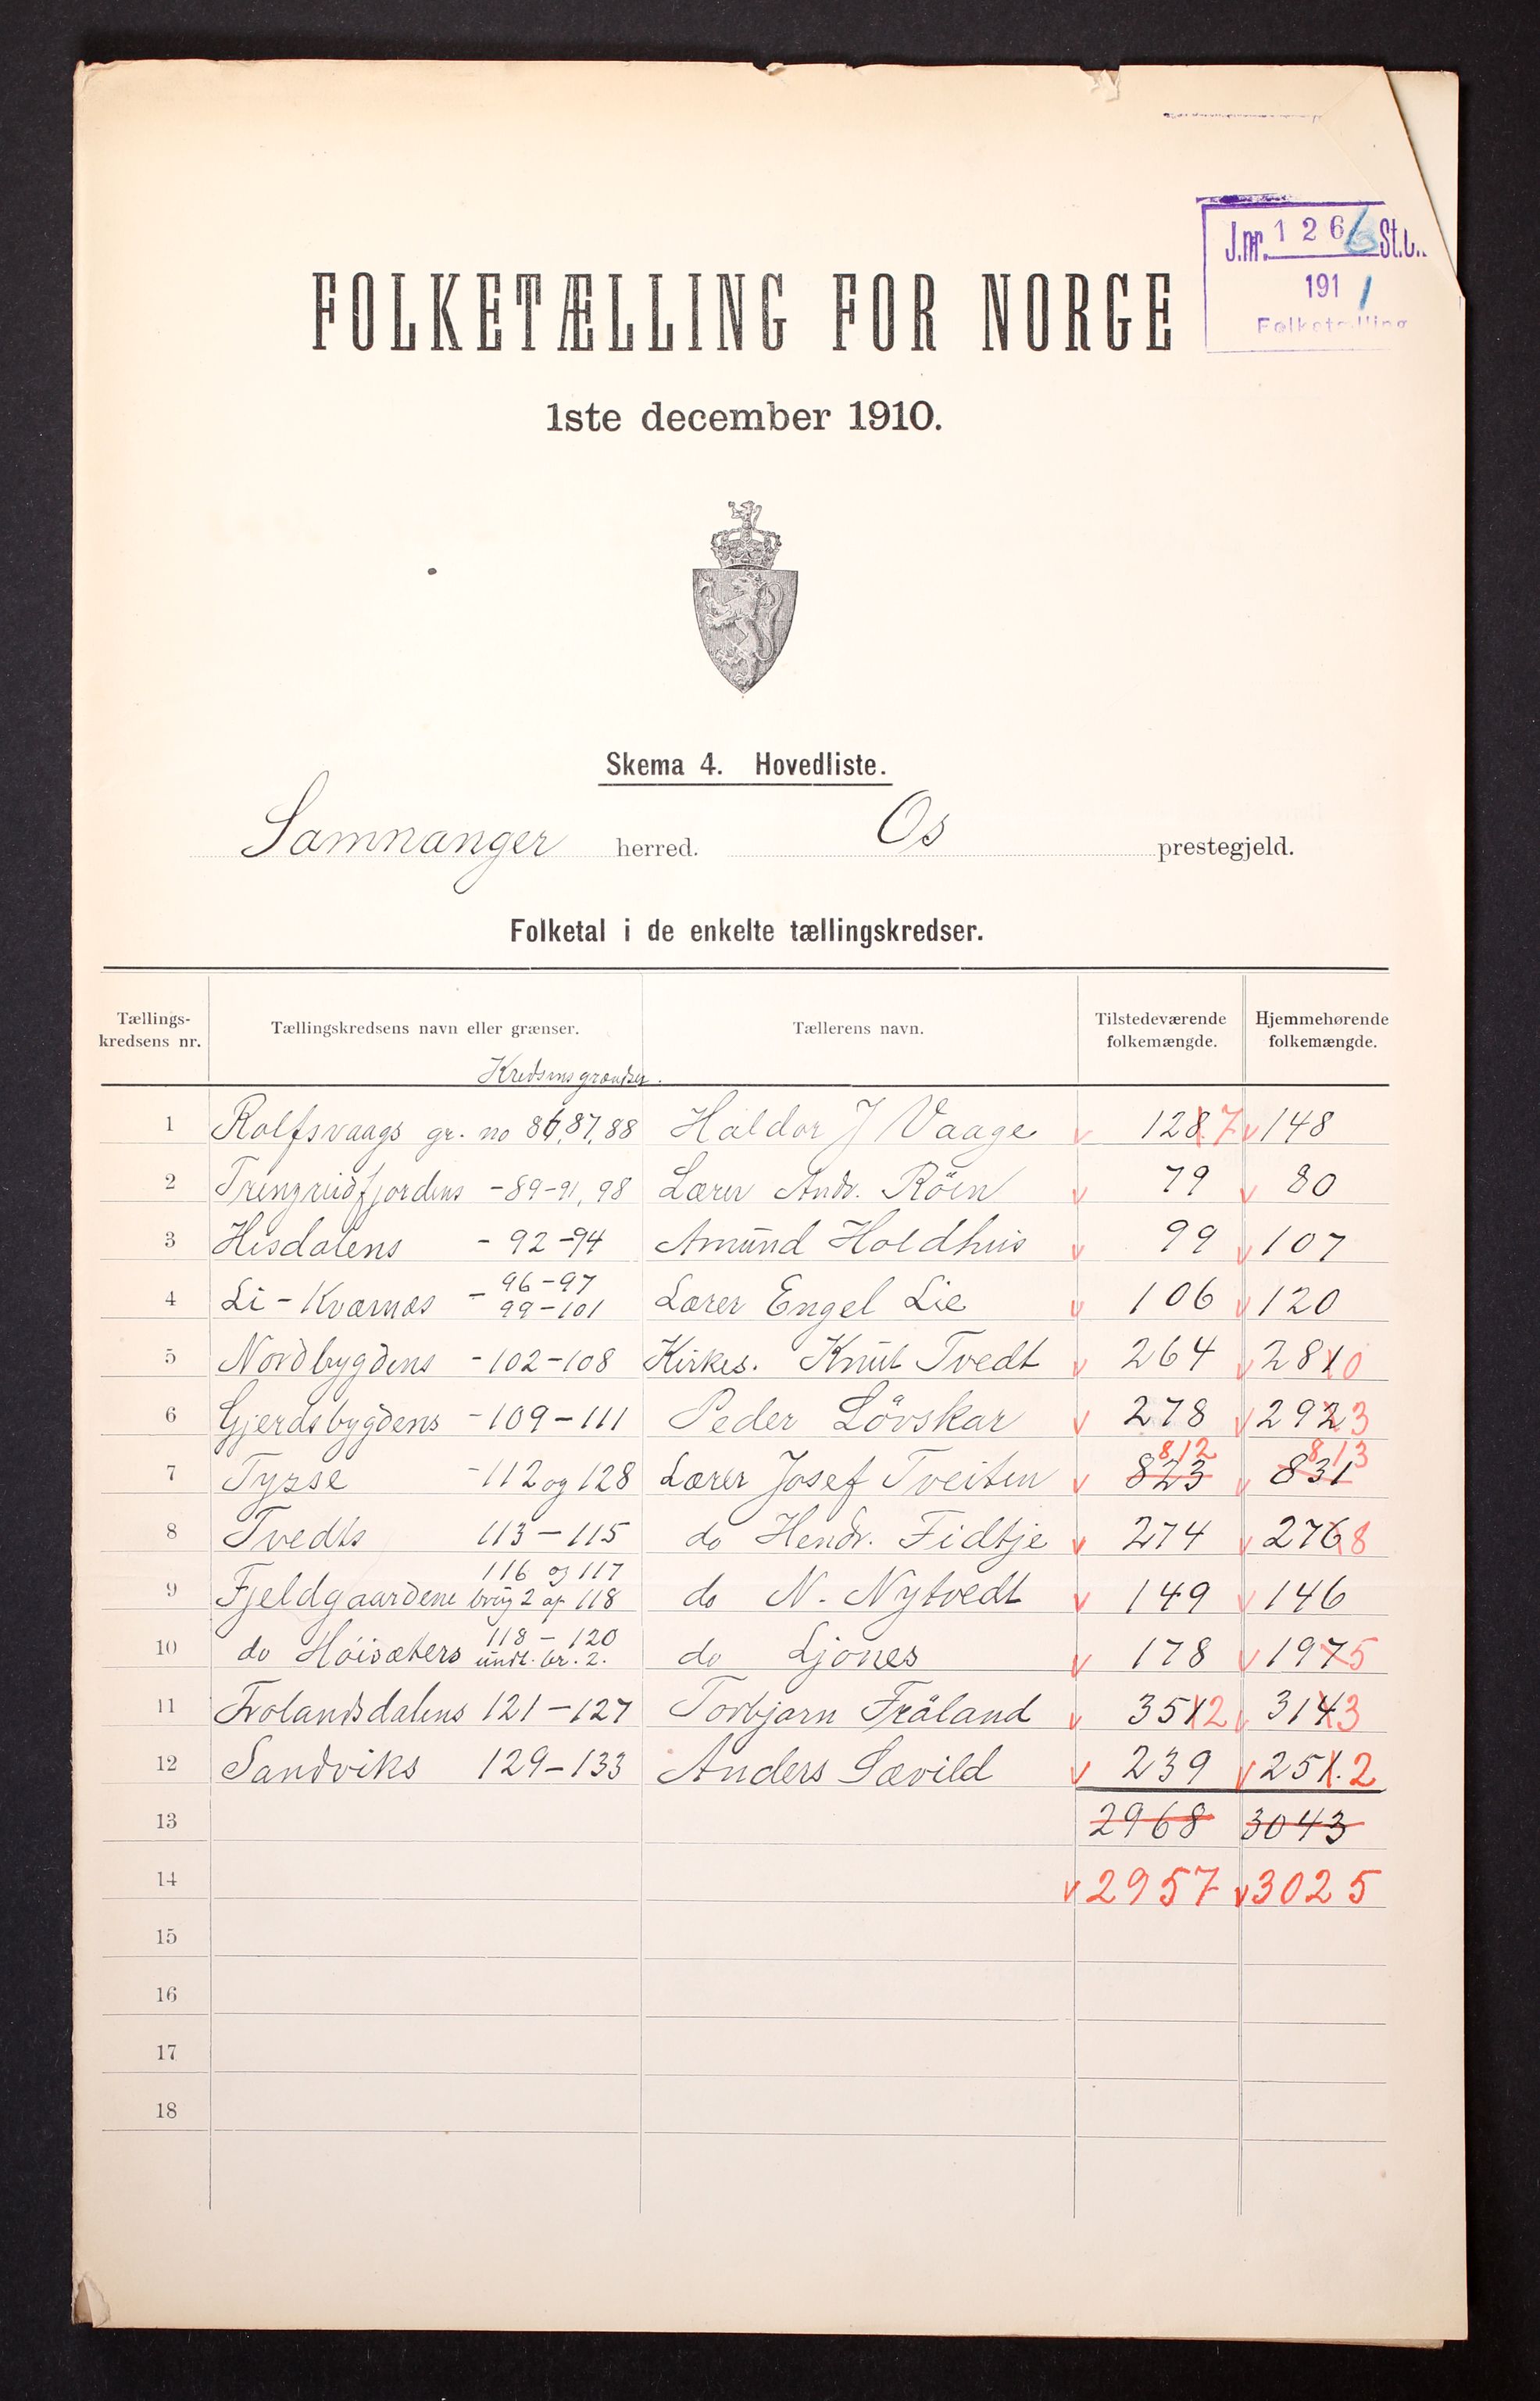 J.nr. 1266 St.c.
191 1
Folketælling
FOLKETÆLLING FOR NORGE
1ste december 1910.
Skema 4. Hovedliste.
Samnanger herred. Os prestegjeld.
Folketal i de enkelte tællingskredser.
Tællings-kredsens nr. Tællingskredsens navn eller grænser. Tællerens navn. Tilstedeværende folkemængde. Hjemmehørende folkemængde.
Kredsens grændser.
1 Rolfsvaags gr. no 86, 87, 88 Haldor J Vaage 128 7 148
2 Trengereidfjordens - 89-91, 98 Lærer Andr. Röen 79 80
3 Hisdalens - 92-94 Amund Holdhus 99 107
4 Li - Kværnes - 96-97 99-101 Lærer Engel Lie 106 120
5 Nordbygdens - 102-108 Kirkes. Knut Tvedt 264 281 0
6 Gjerdsbygdens - 109-111 Peder Lövskar 278 292 3
7 Tysse - 112 og 128 Lærer Josef Tveiten 823 812 831 813
8 Tvedts 113-115 do Hendr. Fidtje 274 276 8
9 Fjeldgaardene 116 og 117 brug 2 af 118 do N. Nytvedt 149 146
10 do Høisæters 118-120 undt. br. 2. do Ljones 178 197 5
11 Frolandsdalens 121-127 Torbjørn Fråland 351 2 314 3
12 Sandviks 129-133 Anders Sævild 239 251. 2
13 2968 3043
14 2957 3025
15
16
17
18